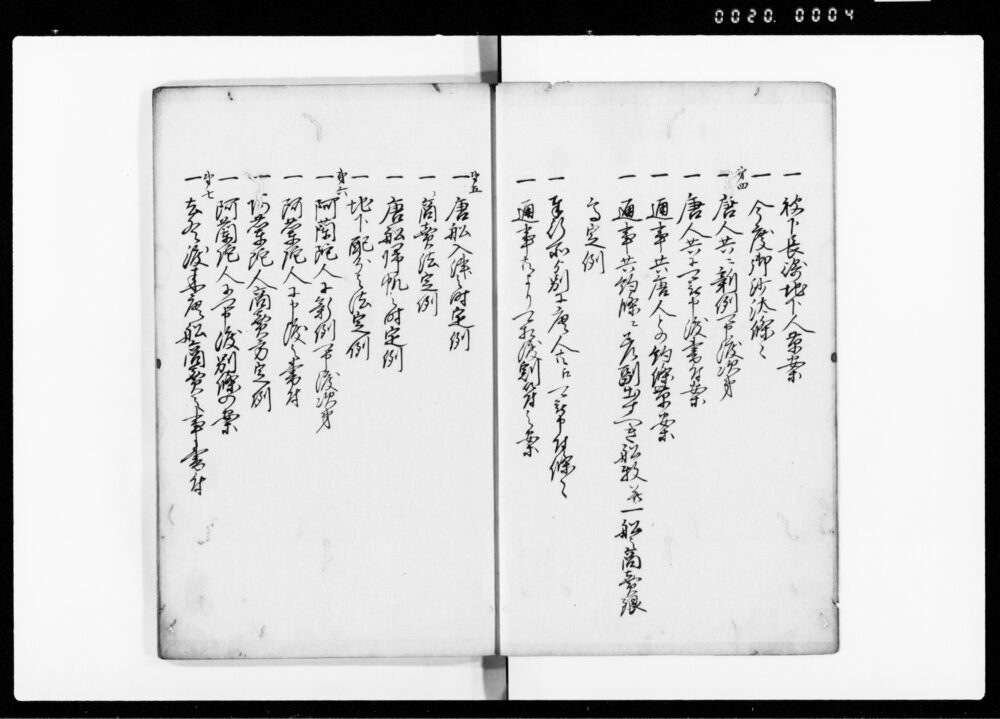 0020. 0004
一 被下長崎地下人案
一 今度御沙汰條之
第四
一 唐人共ニ新例申渡次第
一 唐人共ニ申渡書付案
一 通事共唐人との約條草案
一 通事共約條ニ差副出すへき船数并一船之商売限
高定例
一 唐人
一 通事 割符之案
第五
一 唐船入津之時定例
一 商売法定例
一 唐船帰帆之時定例
一 地下配分之法定例
第六
一 阿蘭陀人江新例申渡次第
一 阿蘭陀人江申渡之書付
一 阿蘭陀人商売方定例
一 阿蘭陀人江申渡別條之案
第七
一 渡来唐船商売之事書付